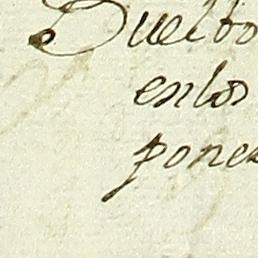 Buelto
enlos
ponez